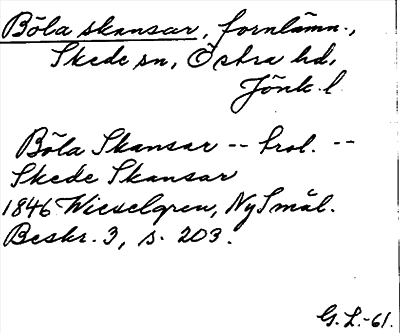 Böla skansar, fornlämn.,
Skede sn, Östra hd,
Jönk. l.
Böla Skansar -- trol. --
Skede Skansar
1846 Wieselgren, Ny Smål.
Beskr. 3, s. 203.
G. L. -61.